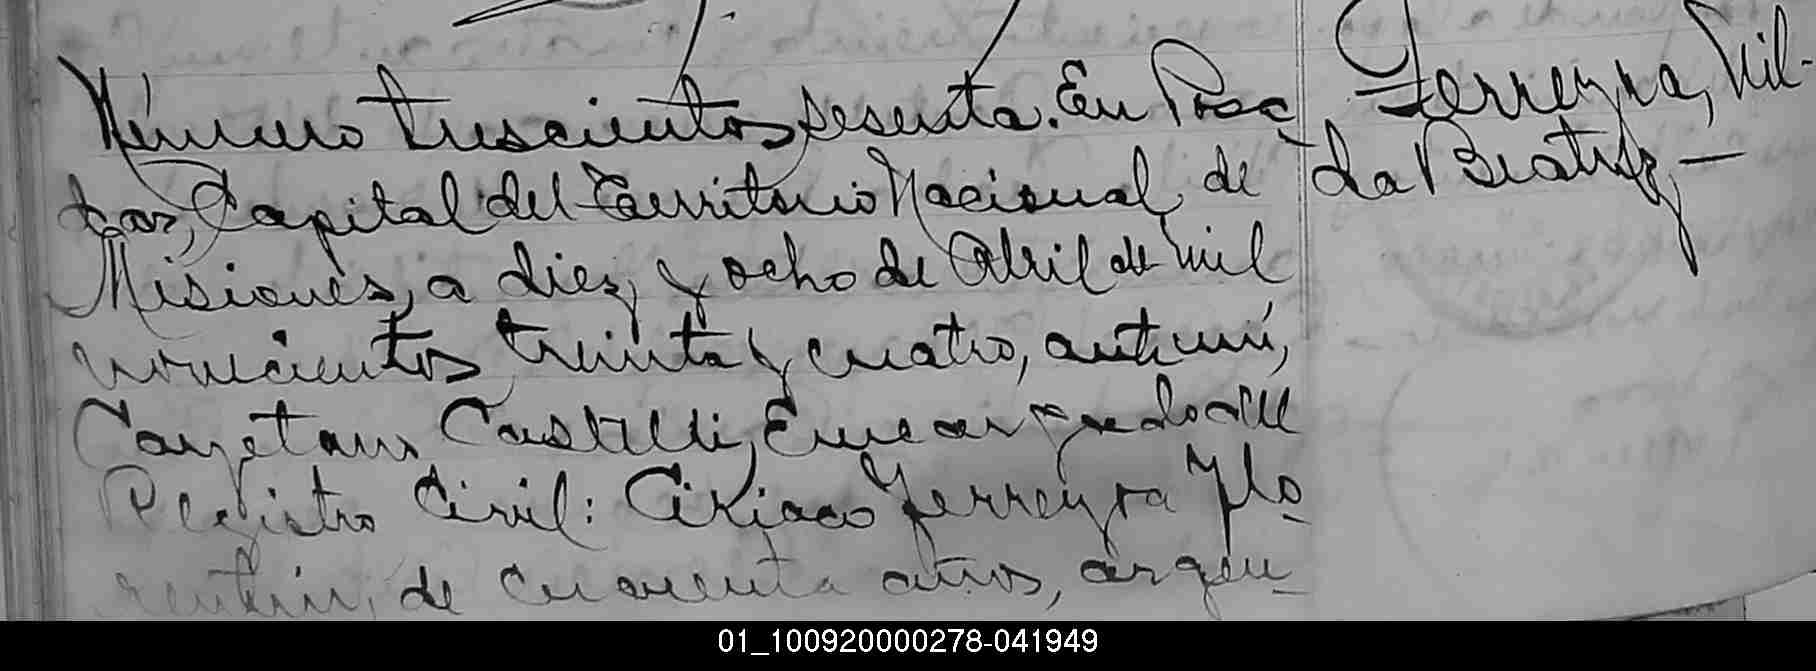 Número trescientos sesenta. En Posa-
das, Capital del Territorio Nacional de
Misiones, a diez y ocho de Abril de mil
novecientos treinta y cuatro, ante mí,
Cayetano Castelli, Encargado del
Registro Civil: Ciriaco Ferreyra Flo-
rentin, de cuarenta años, argen-
Ferreyra, Nil-
da Beatriz,—
01_100920000278-041949